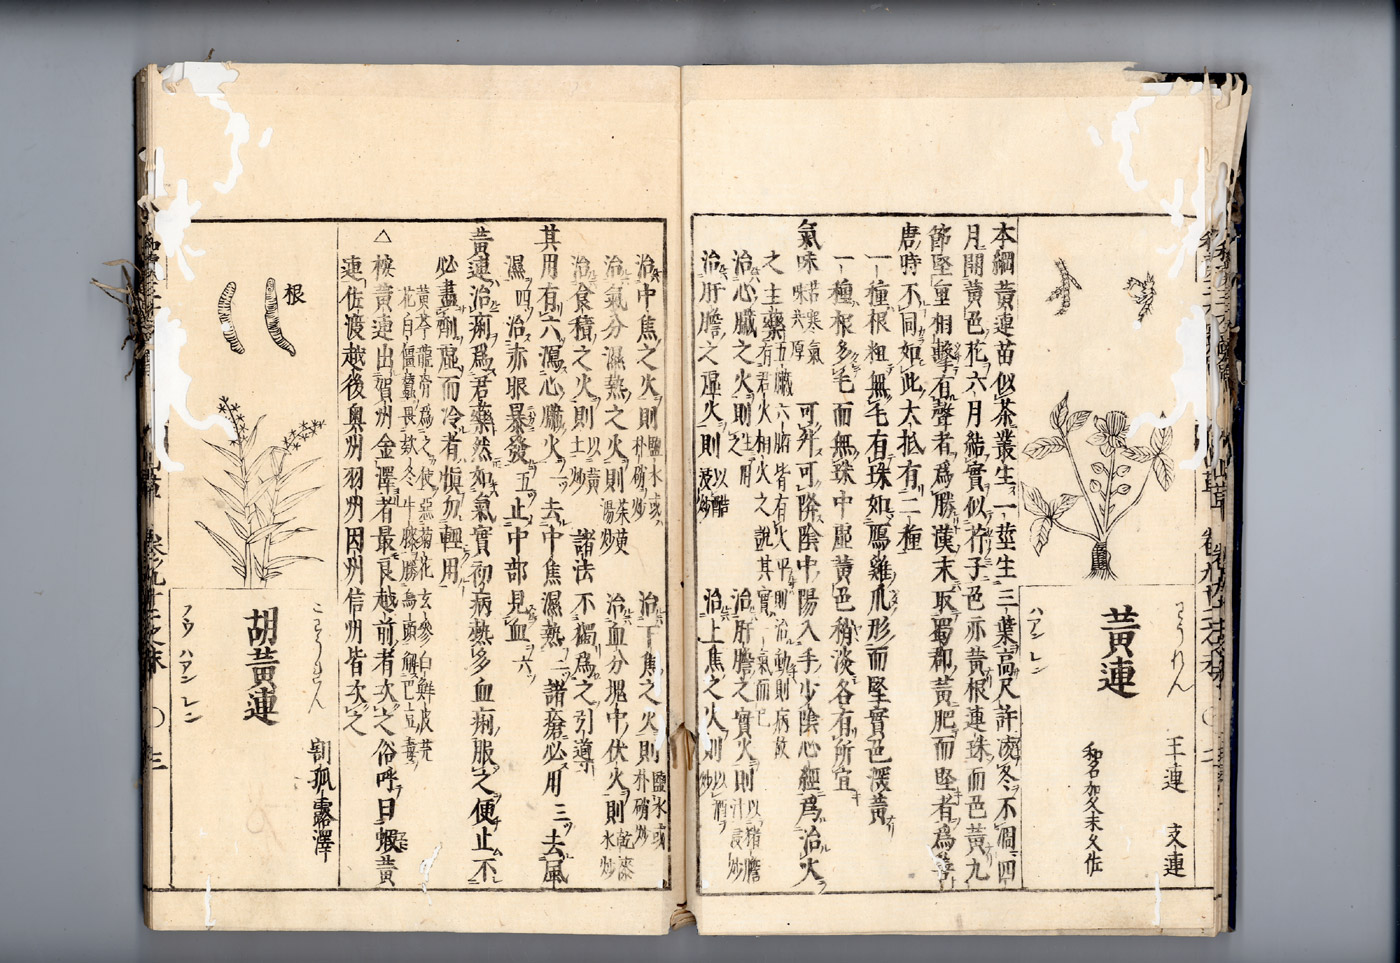 黄連
わうれん
ハアン レン
王連 支連
和名加久末久佐
本綱黄連苗似茶叢生一莖生三葉高尺許凌冬不凋四
月開黄色花六月結實似芹子色亦黄根連珠而色黄九
節堅重相擊有聲者爲勝漢末取蜀郡黄肥而堅者爲善
唐時不同如此大抵有二種
一種根粗無毛有珠如鷹雞爪形而堅實色深黄
一種根多毛而無珠中虛黄色稍淡各有所宜
氣味 苦寒氣味共厚 可升可降陰中陽入手少陰心經爲治火
之主藥 有五臟六腑皆有火平則治動則病故有君火相火之說其實一氣而已
治心臟之火則 生用之 治肝膽之實火則 以猪膽汁浸炒
治肝膽之虛火則 以醋浸炒 治上焦之火則 以酒炒
治中焦之火則 治下焦之火則 鹽水或朴硝炒
治氣分濕熱之火則 茱萸湯炒 治血分塊中伏火則 乾漆水炒
治食積之火則 以黄土炒 諸法不獨爲之引導
其用有六瀉心臟火一 去中焦濕熱二 諸瘡必用三 去風
濕四 治赤眼暴發五 止中部見血六
黄連治痢爲君藥然如氣實初病熱多血痢服之便止不
必盡劑虛而冷者愼勿輕用
黄芩龍骨爲之使惡菊花玄參白鮮皮芫
花白僵蠶畏款冬牛膝勝烏頭解巴豆毒
△按黄連出賀州金澤者最良越前者次之俗呼曰蝦黄
連佐渡越後奥州羽州因州信州皆次之
根
胡黄連
こわうれん
フウ ハアン レン
割孤露澤